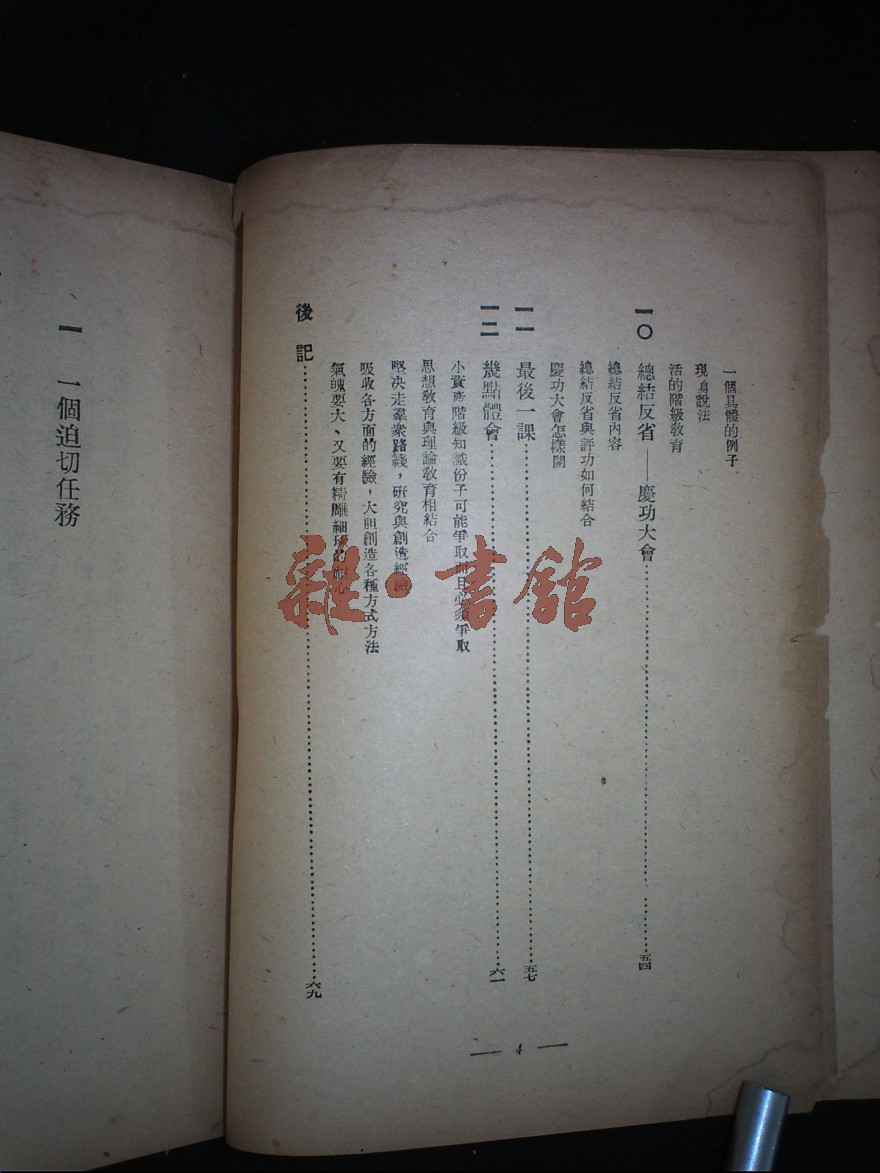 一個具體的例子
現身說法
活的階級教育
一〇 總結反省——慶功大會……五四
總結反省內容
總結反省與評功如何結合
慶功大會怎樣開
一一 最後一課……五七
一二 幾點體會……六一
小資產階級知識份子可能爭取而且必須爭取
思想教育與理論教育相結合
堅決走羣衆路綫，研究與創造經驗
吸收各方面的經驗，大胆創造各種方式方法
氣魄要大、又要有精雕細
後記……六九
— 4 —
一 一個迫切任務
雜·書館